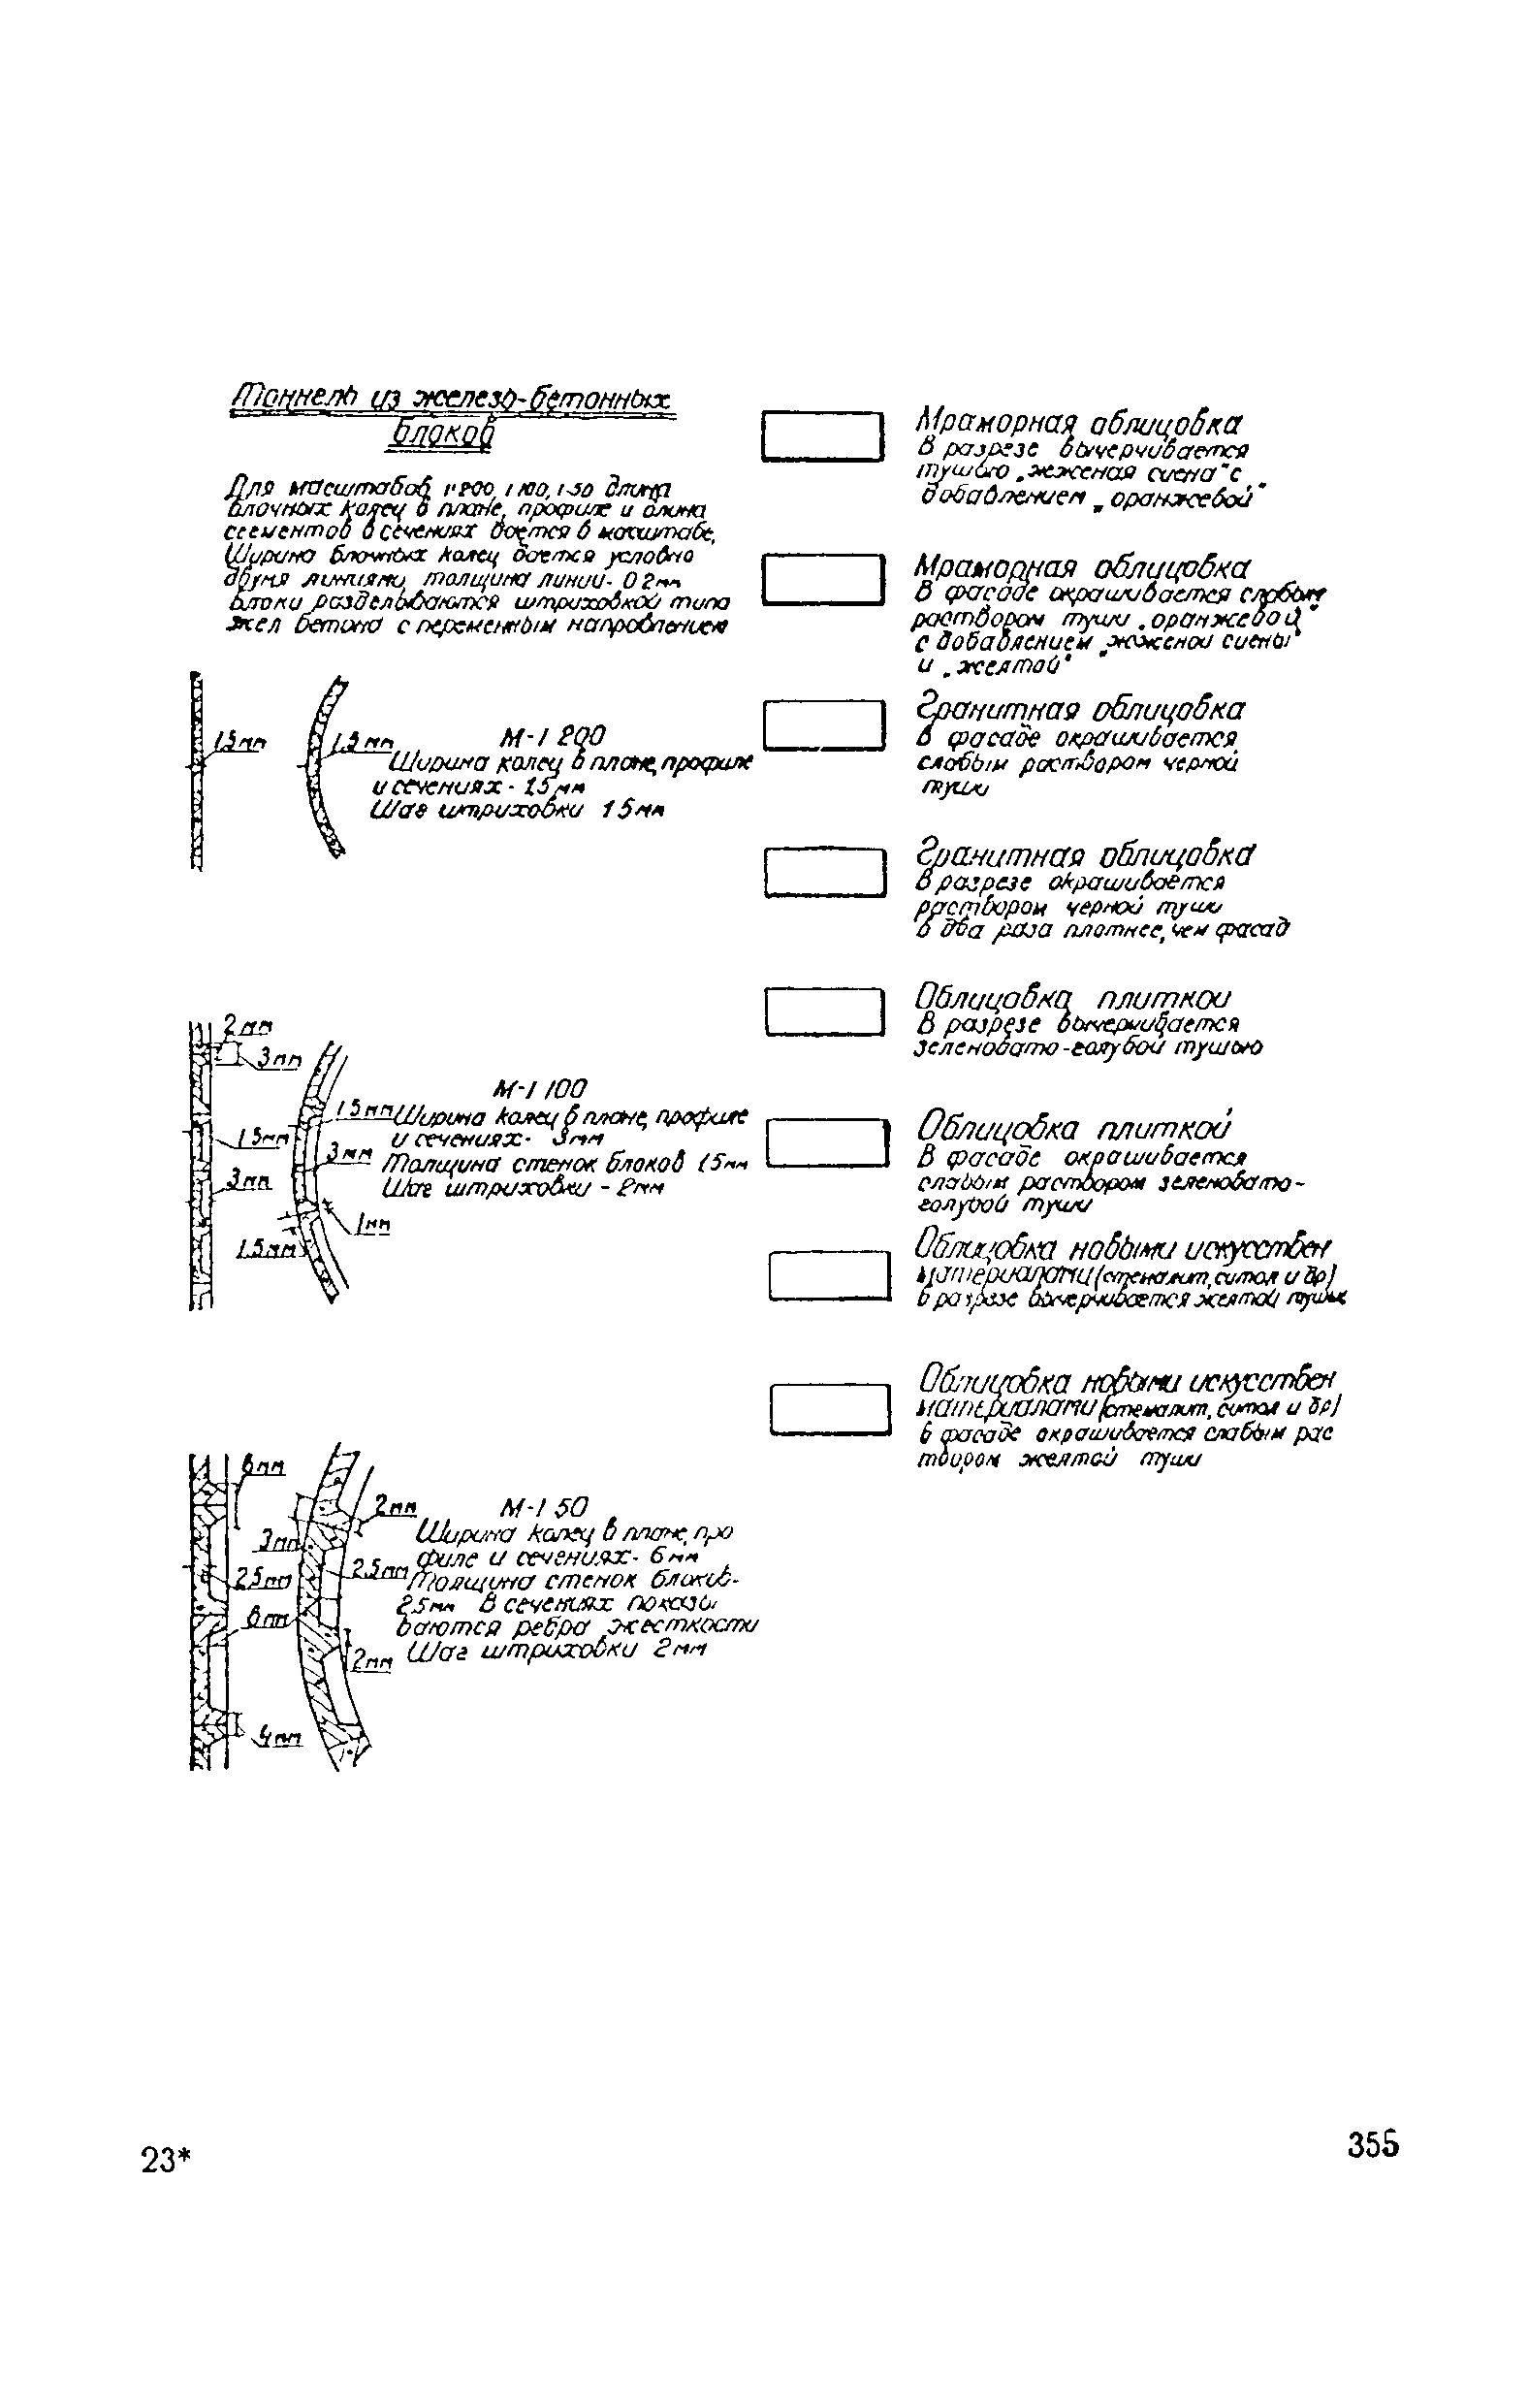 Тоннель из железо-бетонных
блоков
Для масштабов 1:200, 1:100, 1:50 длина
блочных колец в плане, профиле и длина
сегментов в сечениях дается в масштабе,
Ширина блочных колец дается условно
двумя линиями, толщина линии - 0 2мм
Блоки разделываются штриховкой типа
жел бетона с переменным направлением
1.5мм
1.5мм
М-1 200
Ширина колец в плане, профиле
и сечениях - 15мм
Шаг штриховки 15мм
2мм
3мм
1.5мм
3мм
1.5мм
3мм
1мм
1.5мм
М-1 100
Ширина колец в плане, профиле
и сечениях - 3мм
Толщина стенок блоков 15мм
Шаг штриховки - 2мм
6мм
3мм
2.5мм
6мм
4мм
2мм
2.5мм
2мм
М-1 50
Ширина колец в плане, про
филе и сечениях - 6мм
Толщина стенок блоков-
2,5мм В сечениях показы
ваются ребра жесткости
Шаг штриховки 2мм
Мраморная облицовка
В разрезе вычерчивается
тушью „жженая сиена" с
добавлением „оранжевой"
Мраморная облицовка
В фасаде окрашивается слабым
раствором туши „оранжевой"
с добавлением „жженой сиены"
и „желтой"
Гранитная облицовка
В фасаде окрашивается
слабым раствором черной
туши
Гранитная облицовка
В разрезе окрашивается
раствором черной туши
в два раза плотнее, чем фасад
Облицовка плиткой
В разрезе вычерчивается
зеленовато-голубой тушью
Облицовка плиткой
В фасаде окрашивается
слабым раствором зеленовато-
голубой туши
Облицовка новыми искусствен
материалами (стемалит, ситол и др)
в разрезе вычерчивается желтой тушью
Облицовка новыми искусствен
материалами (стемалит, ситол и др)
в фасаде окрашивается слабым рас
твором желтой туши
23*
355